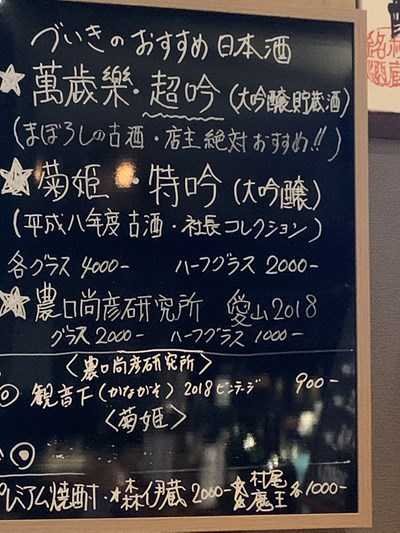 づいきのおすすめ日本酒
★萬歳樂・超吟（大吟醸貯蔵酒）
（まぼろしの古酒・店主絶対おすすめ!!）
★菊姫・特吟（大吟醸）
（平成八年度古酒・社長コレクション）
各グラス4000- ハーフグラス2000-
★農口尚彦研究所 愛山2018
グラス2000- ハーフグラス1000-
〈農口尚彦研究所〉
◎観音下（かながそ）2018ビンテージ 900-
〈菊姫〉
プレミアム焼酎・★森伊蔵2000-★村尾
魔王各1000-